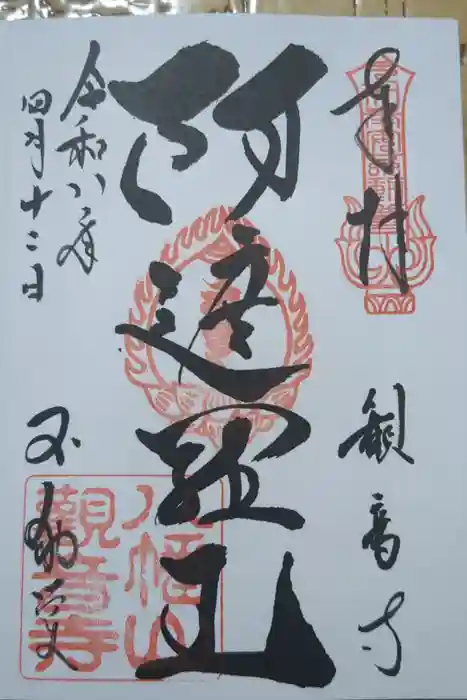 奉拝
観音寺
阿遮羅王
令和八年
四月十二日
不動
八幡山
觀音寺